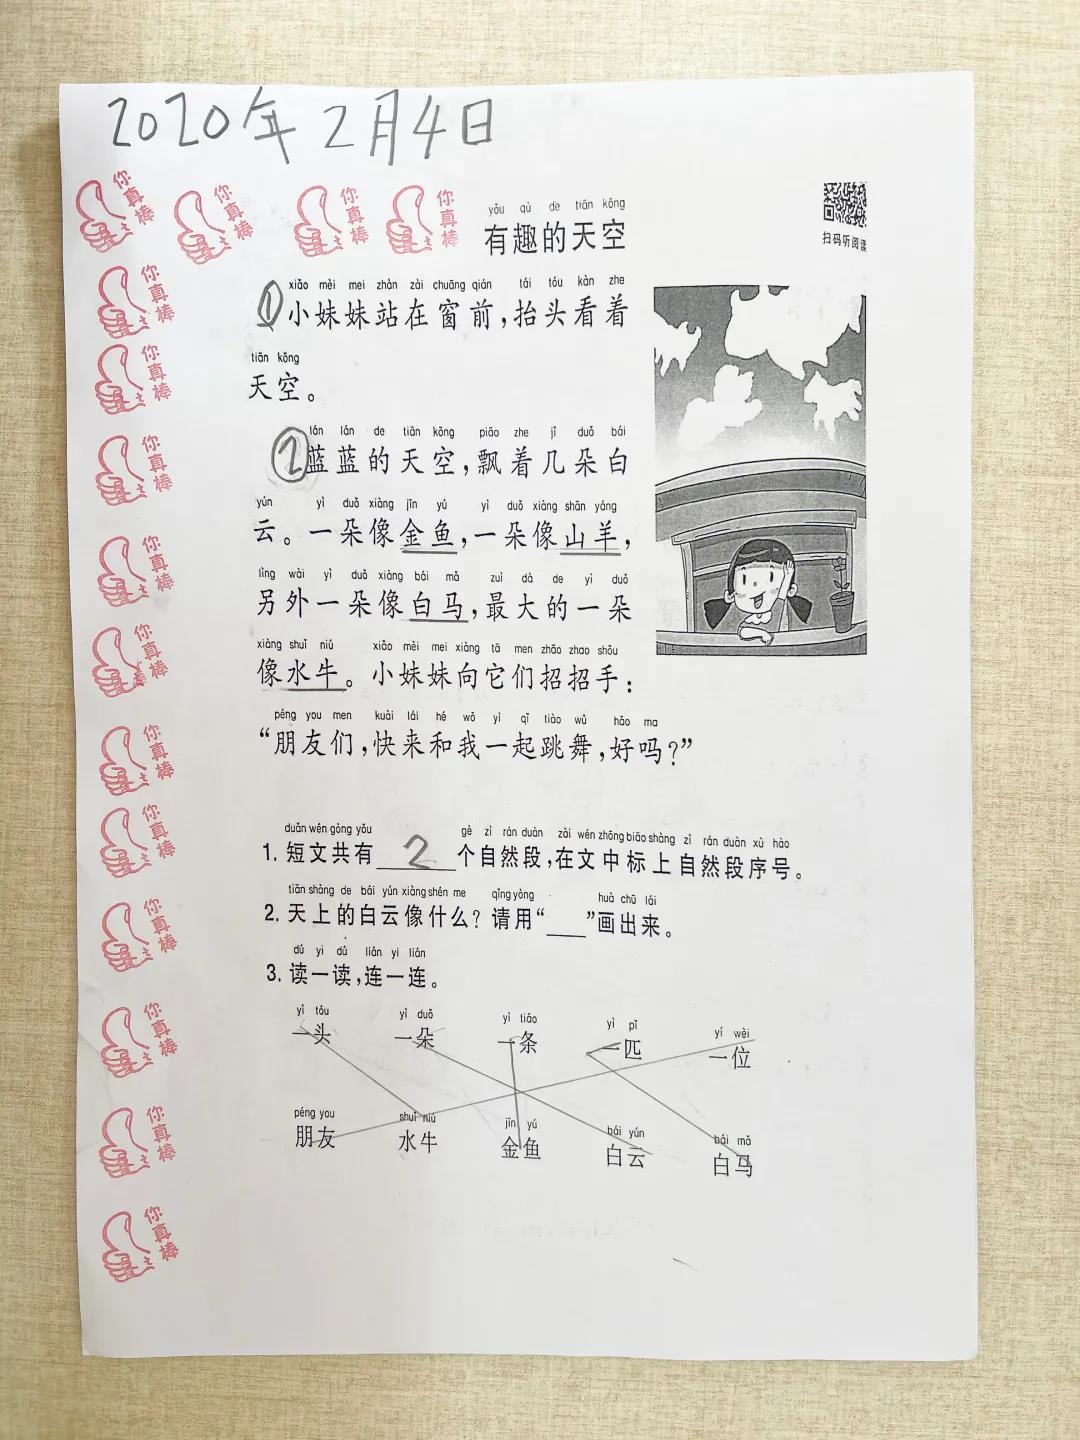 2020年2月4日
你真棒
你真棒
你真棒
你真棒
yǒu qù de tiān kōng
有趣的天空
扫码听阅读
xiǎo mèi mei zhàn zài chuāng qián tái tóu kàn zhe
①小妹妹站在窗前,抬头看着
tiān kōng
天空。
lán lán de tiān kōng piāo zhe jǐ duǒ bái
②蓝蓝的天空,飘着几朵白
yún yì duǒ xiàng jīn yú yì duǒ xiàng shān yáng
云。一朵像金鱼,一朵像山羊,
lìng wài yì duǒ xiàng bái mǎ zuì dà de yì duǒ
另外一朵像白马,最大的一朵
xiàng shuǐ niú xiǎo mèi mei xiàng tā men zhāo zhao shǒu
像水牛。小妹妹向它们招招手:
péng you men kuài lái hé wǒ yì qǐ tiào wǔ hǎo ma
“朋友们,快来和我一起跳舞,好吗?”
duǎn wén gòng yǒu gè zì rán duàn zài wén zhōng biāo shàng zì rán duàn xù hào
1. 短文共有 2 个自然段,在文中标上自然段序号。
tiān shàng de bái yún xiàng shén me qǐng yòng huà chū lái
2. 天上的白云像什么?请用“___”画出来。
dú yi dú lián yi lián
3. 读一读,连一连。
yì tóu yì duǒ yì tiáo yì pǐ yí wèi
一头 一朵 一条 一匹 一位
péng you shuǐ niú jīn yú bái yún bái mǎ
朋友 水牛 金鱼 白云 白马
你真棒
你真棒
你真棒
你真棒
你真棒
你真棒
你真棒
你真棒
你真棒
你真棒
你真棒